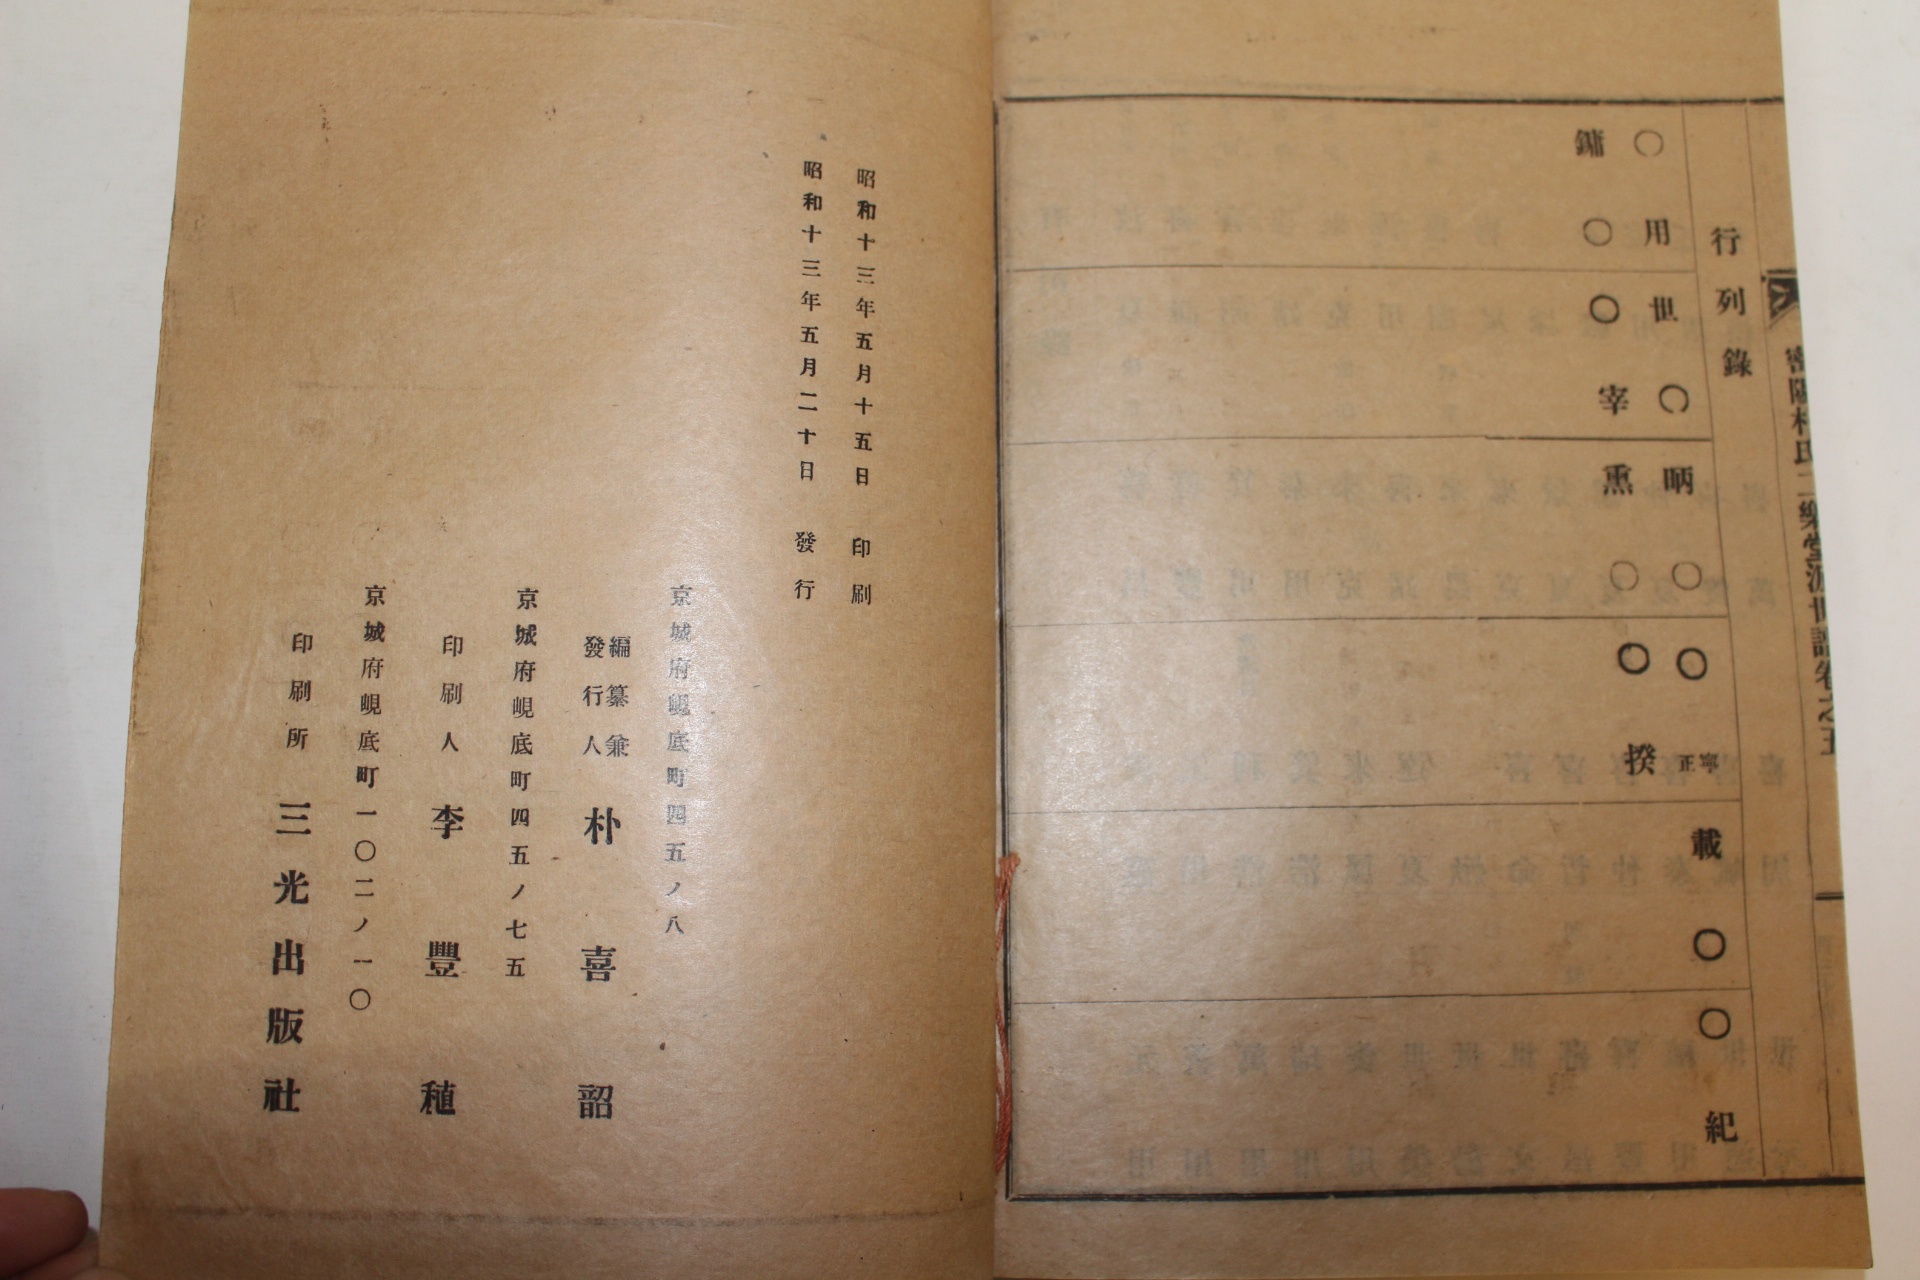 密陽朴氏二樂堂派世譜卷之五
行列錄
○用
世○
昞○
○寧正
載○
○紀
鏞○
○宰
熏○
○揆
昭和十三年五月十五日 印刷
昭和十三年五月二十日 發行
京城府峴底町四五ノ八
編纂兼
發行人 朴喜韶
京城府峴底町四五ノ七五
印刷人 李豐稙
京城府峴底町一〇二ノ一〇
印刷所 三光出版社